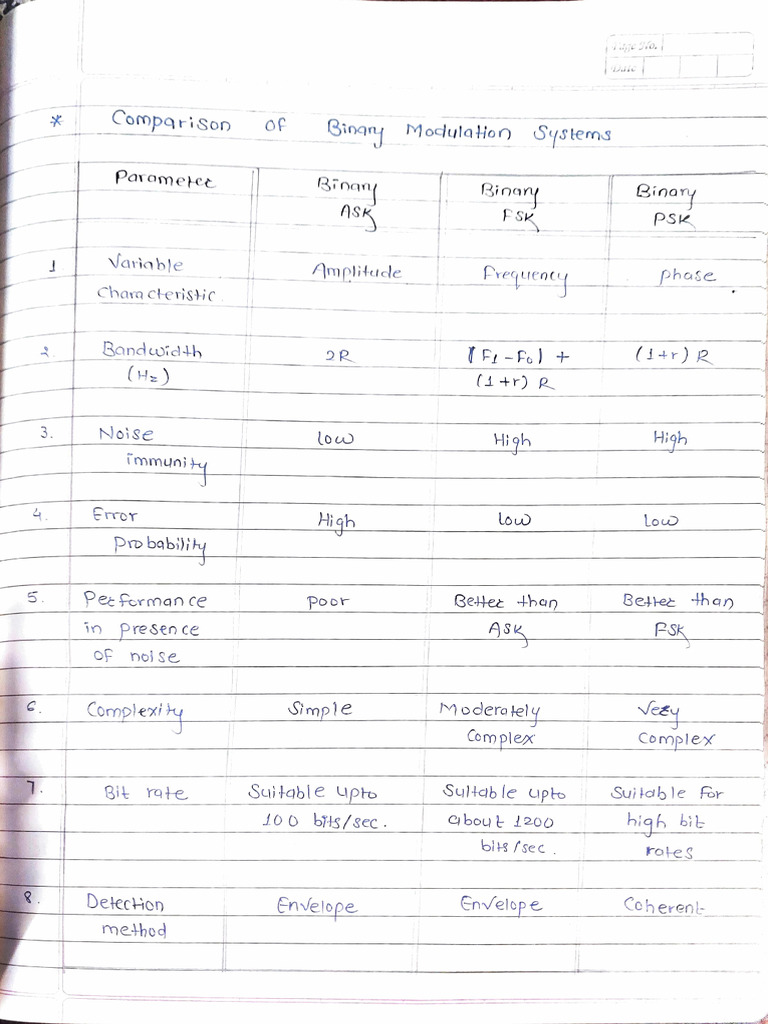 Page No.
Date
* Comparison of Binary Modulation Systems
Parameter Binary Binary Binary
ASK FSK PSK
1 Variable Amplitude Frequency phase
characteristic
2. Bandwidth 2R |F1 - F0| + (1+r) R
(Hz) (1+r) R
3. Noise low High High
immunity
4. Error High low low
probability
5. Performance poor Better than Better than
in presence ASK FSK
of noise
6. Complexity Simple Moderately Very
complex complex
7. Bit rate Suitable upto Suitable upto Suitable for
100 bits/sec. about 1200 high bit
bits/sec. rates
8. Detection Envelope Envelope Coherent
method